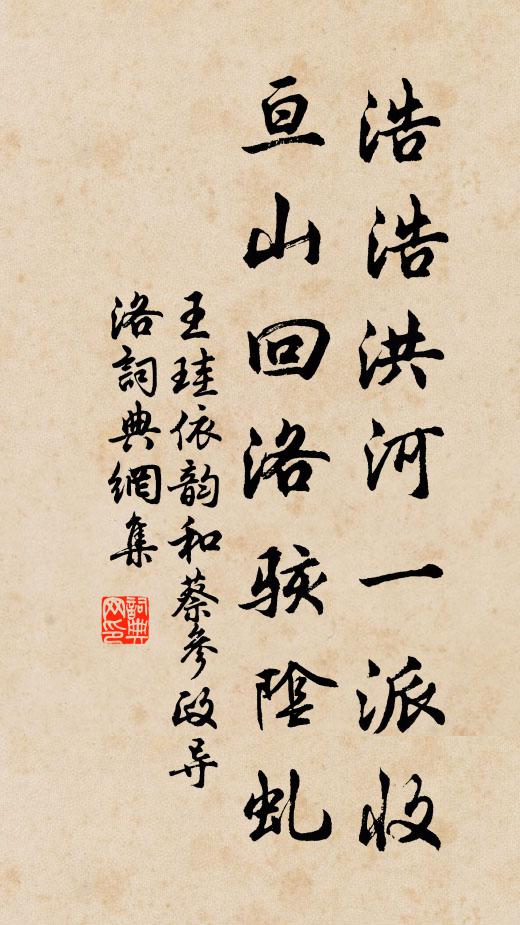 浩浩洪河一派收
亘山回洛骇陰虬
王珪依韵和蔡參政导
洛詞典網集
詞典网印